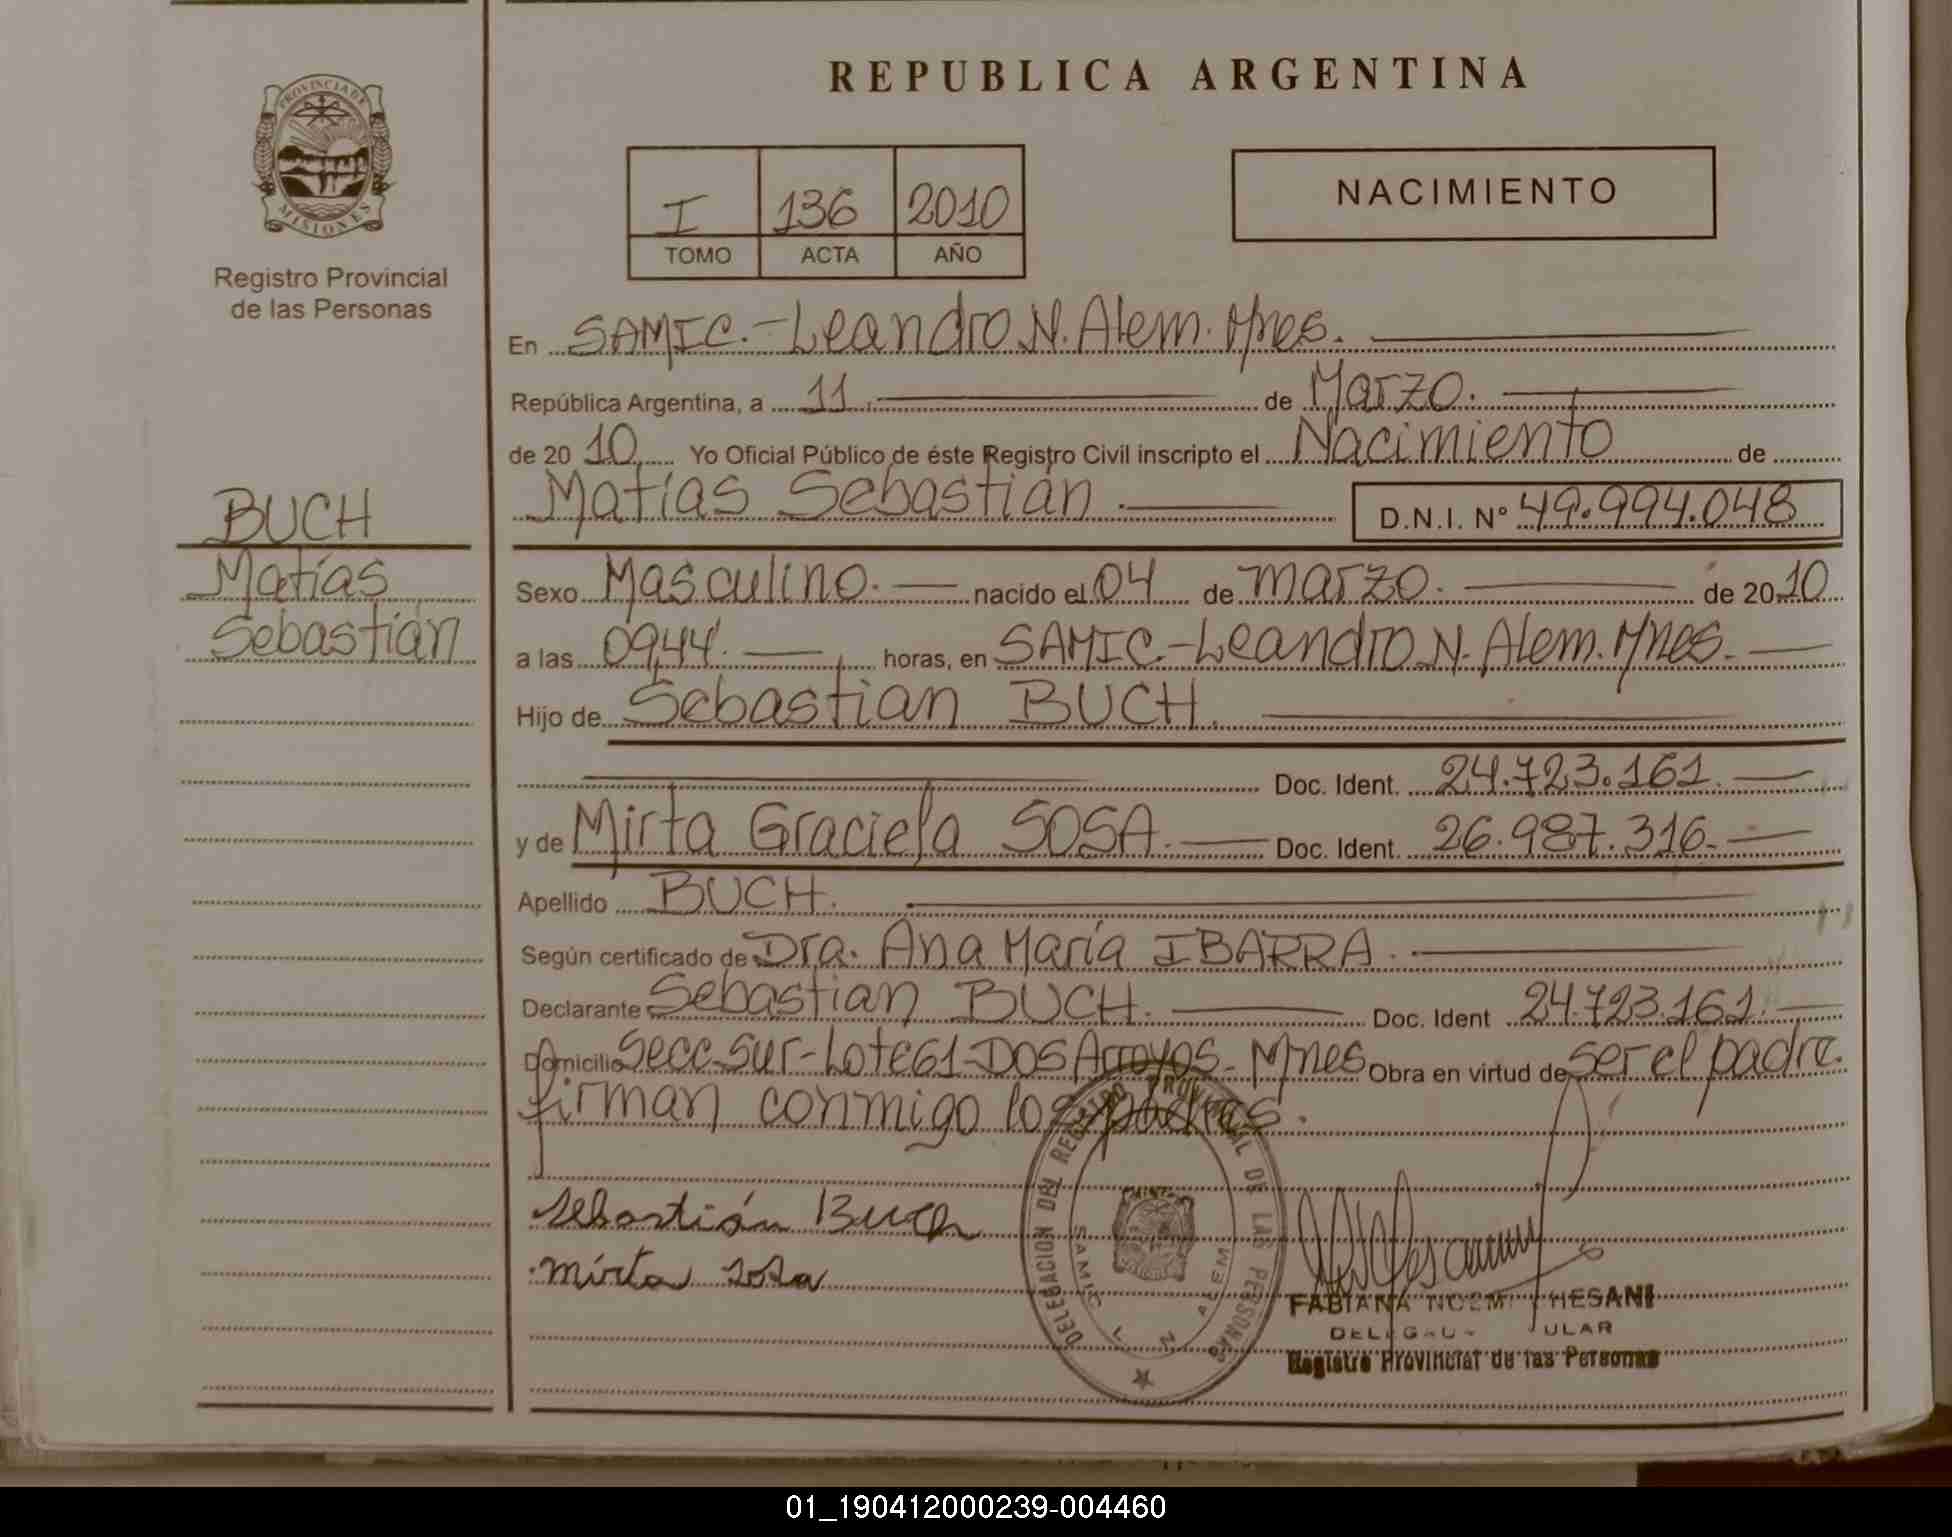 PROVINCIA DE
MISIONES
Registro Provincial
de las Personas
BUCH
Matías
Sebastián
REPUBLICA ARGENTINA
I 136 2010
TOMO ACTA AÑO
NACIMIENTO
En SAMIC.-Leandro N. Alem. Mnes.
República Argentina, a 11. de Marzo.
de 2010 Yo Oficial Público de éste Registro Civil inscripto el Nacimiento de
Matías Sebastián. D.N.I. Nº 49.994.048
Sexo Masculino. nacido el 04 de marzo. de 2010
a las 09,44. horas, en SAMIC.-Leandro N. Alem. Mnes.
Hijo de Sebastian BUCH.
Doc. Ident. 24.723.161.
y de Mirta Graciela SOSA. Doc. Ident. 26.987.316.
Apellido BUCH.
Según certificado de Dra. Ana María IBARRA.
Declarante Sebastian BUCH. Doc. Ident 24.723.161.
Domicilio Secc. Sur-Lote 61-Dos Arroyos. Mnes Obra en virtud de ser el padre.
firman conmigo los padres.
Sebastián Buch
mirta sosa
DELEGACION DEL REGISTRO PROVINCIAL DE LAS PERSONAS
SAMIC L. N. ALEM
FABIANA NOEMI CHESANI
Registro Provincial de las Personas
01_190412000239-004460